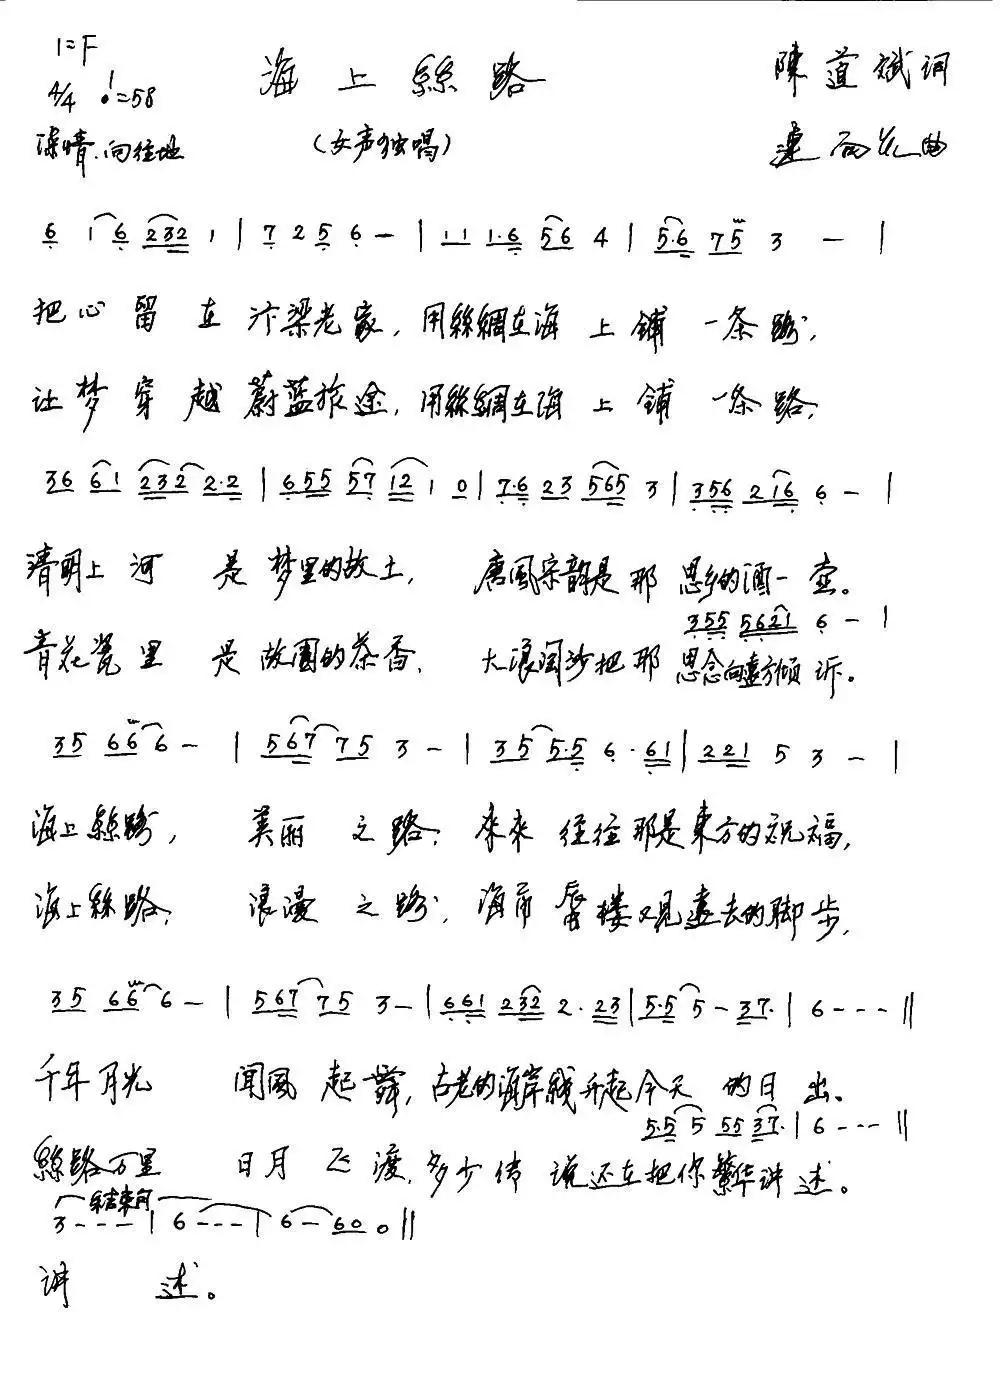 1=F
海上絲路
陳道斌词
4/4 ♩=58
深情.向往地
(女声独唱)
连向先曲
6 1 6 2 3 2 1 | 7 2 5 6 - | 1 1 1·6 5 6 4 | 5·6 7 5 3 - |
把心留在汴梁老家,用絲綢在海上铺一条路,
让梦穿越蔚蓝旅途,用絲綢在海上铺一条路,
3 6 6 1 2 3 2 2·2 | 6 5 5 5 7 1 2 1 0 | 7·6 2 3 5 6 5 3 | 3 5 6 2 1 6 6 - |
清明上河是梦里的故土,唐風宋韵是那思乡的酒一壶。
3 5 5 5 6 2 1 6 - |
青花瓷里是故園的茶香,大浪淘沙把那思念向遠方倾诉。
3 5 6 6 6 - | 5 6 7 7 5 3 - | 3 5 5·5 6·6 1 | 2 2 1 5 3 - |
海上絲路,美丽之路,来來往往那是東方的祝福,
海上絲路,浪漫之路,海市蜃楼又見遠去的脚步,
3 5 6 6 6 - | 5 6 7 7 5 3 - | 6 6 1 2 3 2 2·2 3 | 5·5 5 - 3 7· | 6 - - - ||
千年月光闻風起舞,古老的海岸线升起今天的日出。
5·5 5 5 5 3 7· | 6 - - - ||
絲路万里日月飞渡,多少传说还在把你繁华讲述。
结束句
3 - - - | 6 - - - | 6 - 6 0 0 ||
讲述。